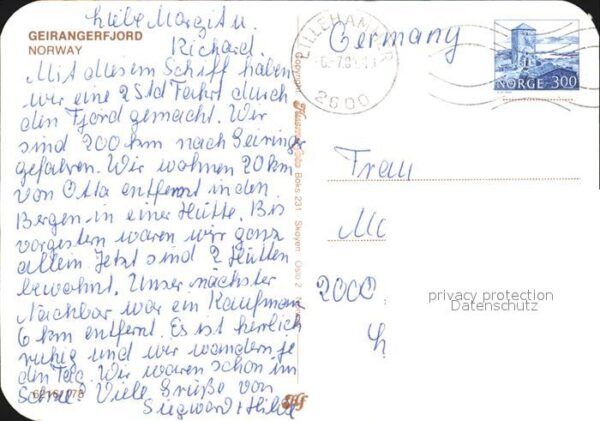 Liebe Margit u.
GEIRANGERFJORD
NORWAY
Richard.
Mit diesem Schiff haben
wir eine 2 Std Fahrt durch
den Fjord gemacht. Wir
sind 200 km nach Geiringer
gefahren. Wir wohnen 20 km
von Otta entfernt in den
Bergen in einer Hütte. Bis
vorgestern waren wir ganz
allein Jetzt sind 2 Hütten
bewohnt. Unser nächster
Nachbar war ein Kaufmann
6 km entfernt. Es ist herrlich
ruhig und wir wandern je
den Tag. Wir waren schon im
Schnee! Viele Grüße von
Siegward + Hilde
6216/178
Boks 231 Skøyen Oslo 2
LILLEHAMMER
2600
Germany
NORGE 300
Frau
M
2000
privacy protection
Datenschutz